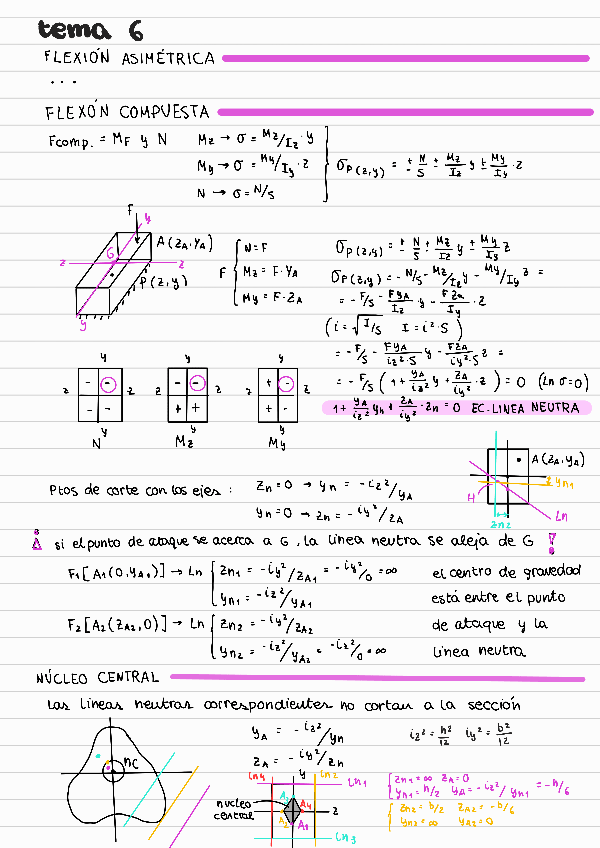 tema 6
FLEXIÓN ASIMÉTRICA
...
FLEXÓN COMPUESTA
Fcomp. = MF y N
Mz → σ = Mz/Iz · y
My → σ = My/Iy · z
N → σ = N/S
σP(z,y) = ± N/S ± Mz/Iz y ± My/Iy · z
F
y
A(zA,yA)
G
z
z
P(z,y)
y
F { N = F
Mz = F·yA
My = F·zA
σP(z,y) = ± N/S ± Mz/Iz y ± My/Iy z
σP(z,y) = - N/S - Mz/Iz y - My/Iy z =
= - F/S - F yA/Iz y - F zA/Iy · z
(i = √I/S   I = i²·S)
= - F/S - F yA/iz²·S y - F zA/iy²·S z =
= - F/S (1 + yA/iz² y + zA/iy² · z) = 0 (Ln σ=0)
1 + yA/iz² yn + zA/iy² · zn = 0 EC. LINEA NEUTRA
y y y
z - - z - - z + - z
- - + + + -
N Mz My
A(zA,yA)
yn1
H
zn2
Ln
Ptos de corte con los ejes : zn = 0 → yn = - iz²/yA
yn = 0 → zn = - iy²/zA
¡ si el punto de ataque se acerca a G, la línea neutra se aleja de G !
F1[A1(0,yA1)] → Ln { zn1 = - iy²/zA1 = - iy²/0 = ∞
yn1 = - iz²/yA1
F2[A2(zA2,0)] → Ln { zn2 = - iy²/zA2
yn2 = - iz²/yA2 = - iz²/0 = ∞
el centro de gravedad
está entre el punto
de ataque y la
línea neutra
NÚCLEO CENTRAL
las líneas neutras correspondientes no cortan a la sección
nc
yA = - iz²/yn
zA = - iy²/zn
iz² = h²/12 iy² = b²/12
Ln4 y Ln2
Ln1
nucleo
central
A3
A4
A2
A1
z
Ln3
zn1 = ∞ zA = 0
yn1 = h/2 yA = - iz²/yn1 = -h/6
zn2 = b/2 zA2 = -b/6
yn2 = ∞ yA2 = 0